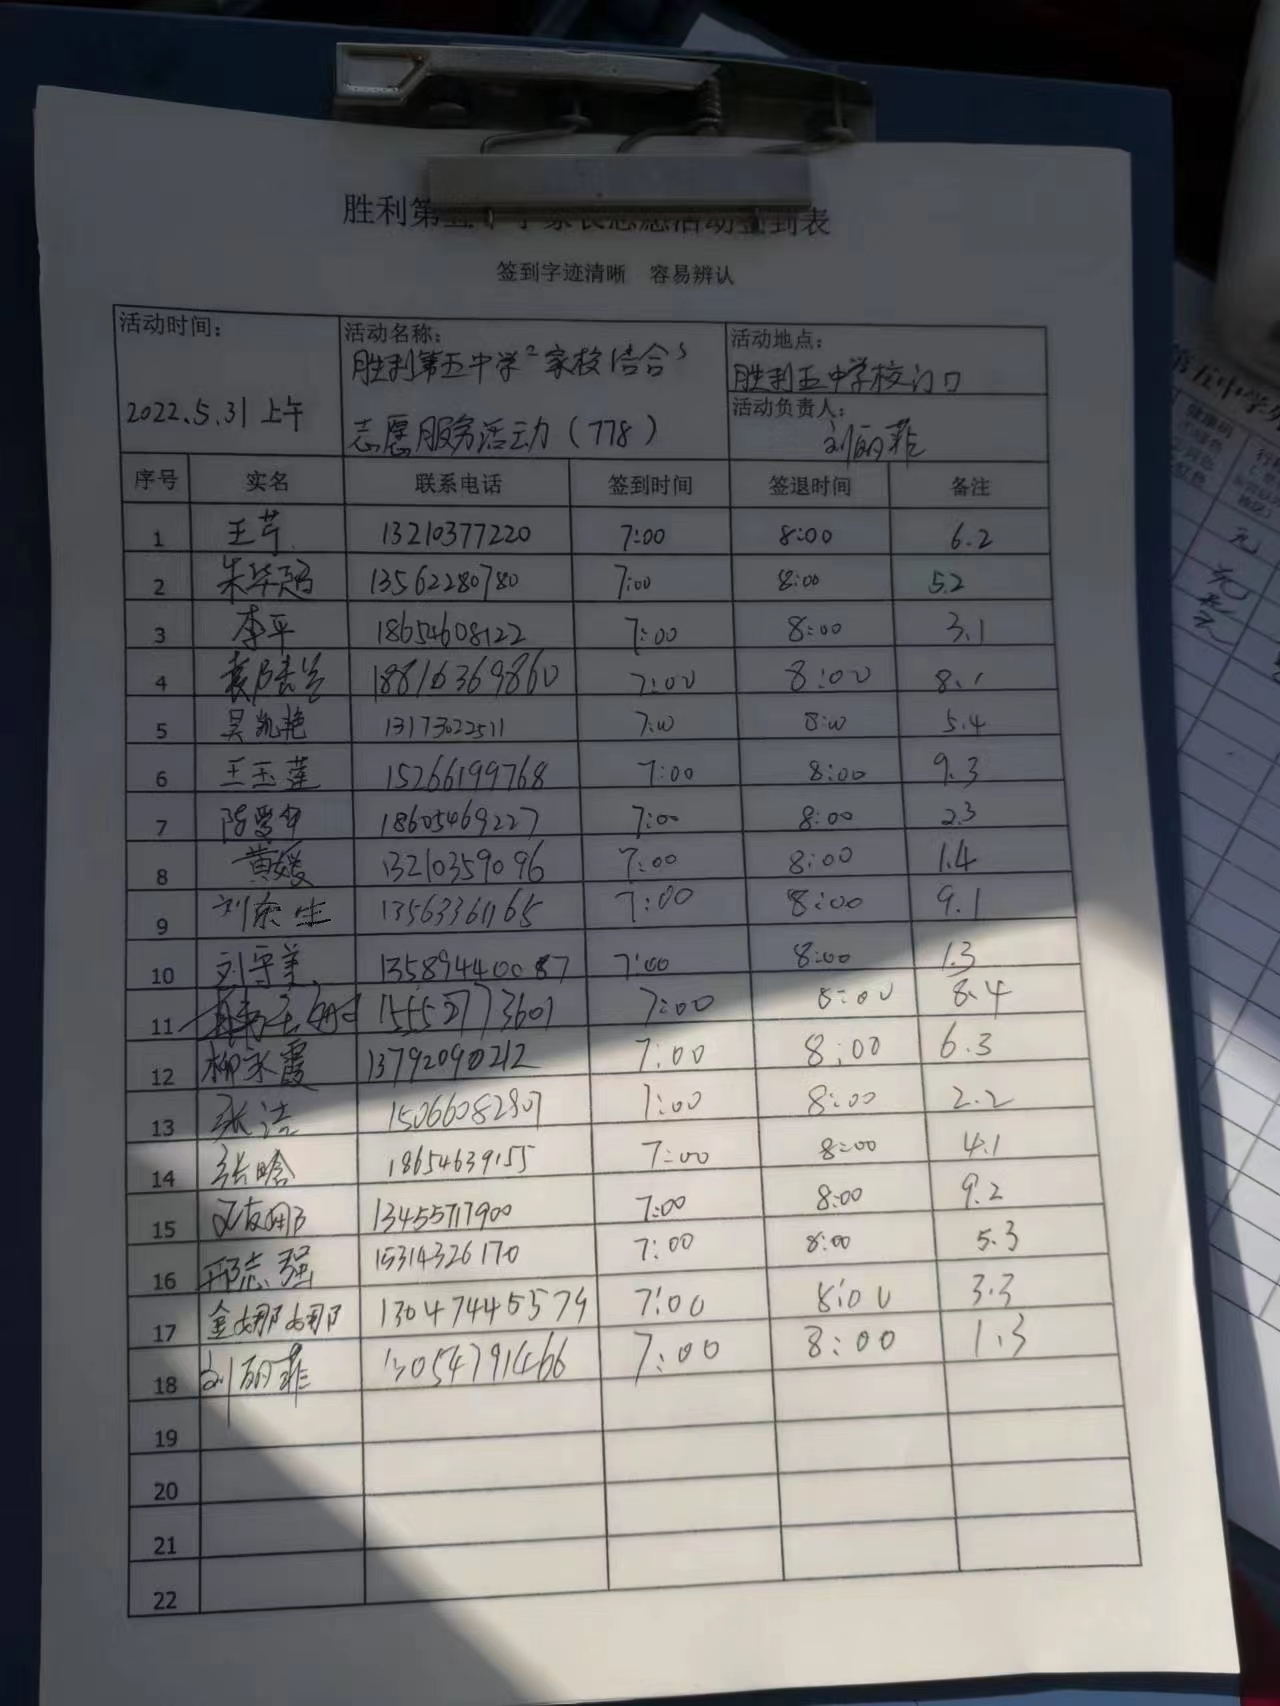 胜利第五中学家长志愿活动签到表
签到字迹清晰 容易辨认
活动时间：
2022.5.31上午
活动名称：
胜利第五中学"家校结合"
志愿服务活动（778）
活动地点：
胜利五中学校门口
活动负责人：
刘丽菲
序号 实名 联系电话 签到时间 签退时间 备注
1 王芹 13210377220 7:00 8:00 6.2
2 13562280780 7:00 8:00 5.2
3 李平 18654608122 7:00 8:00 3.1
4 18816369860 7:00 8:00 8.1
5 吴凯艳 13173022511 7:00 8:00 5.4
6 王玉莲 15266199768 7:00 8:00 9.3
7 18605469227 7:00 8:00 2.3
8 黄媛 13210359096 7:00 8:00 1.4
9 刘东生 13563361165 7:00 8:00 9.1
10 刘守美 13589440087 7:00 8:00 1.3
11 15552773601 7:00 8:00 8.4
12 柳永霞 13792090212 7:00 8:00 6.3
13 张洁 15066082807 7:00 8:00 2.2
14 张晗 18654639155 7:00 8:00 4.1
15 13455717900 7:00 8:00 9.2
16 邢志强 15314326170 7:00 8:00 5.3
17 金娜娜 13047445579 7:00 8:00 3.3
18 刘丽菲 13054791466 7:00 8:00 1.3
19
20
21
22
第五中学
健康码